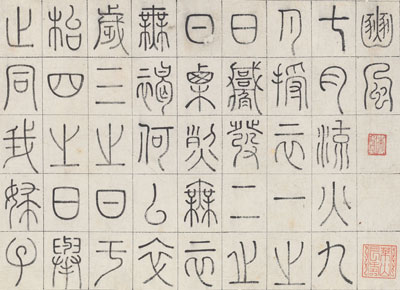 豳風
七月流火九
月授衣一之
日觱發二之
日栗烈無衣
無褐何以卒
歲三之日于
枱四之日舉
止同我婦子